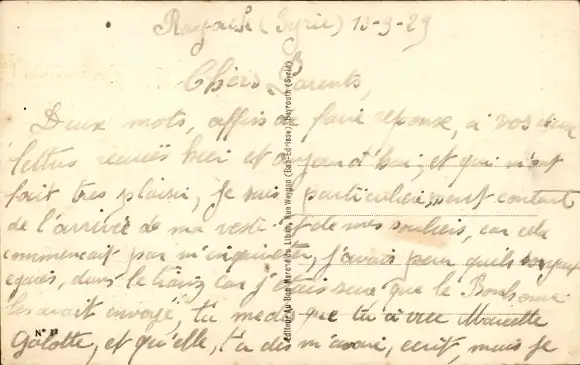 Rayack (Syrie) 13-9-29
Chers Parents,
Deux mots, affin de faire réponse, a vos deux
lettres recues hier et aujourd'hui, et qui m'ont
fait tres plaisir, Je suis particulierement content
de l'arrivée de ma veste et de mes souliers, car cela
commencait par m'inquieter, j'avais peur quils soyent
egarés, dans le trans, car j'étais seur que le Bonhomme
les avait envoyé, tu me dis que tu a vue Marcelle
Golotte, et qu'elle, t'a dis m'avoir, ecrit, mais je
N° 12
Editeur Au Bon Marché du Liban, Rue Weygan (Bab-Edrisse), Beyrouth (Syrie)